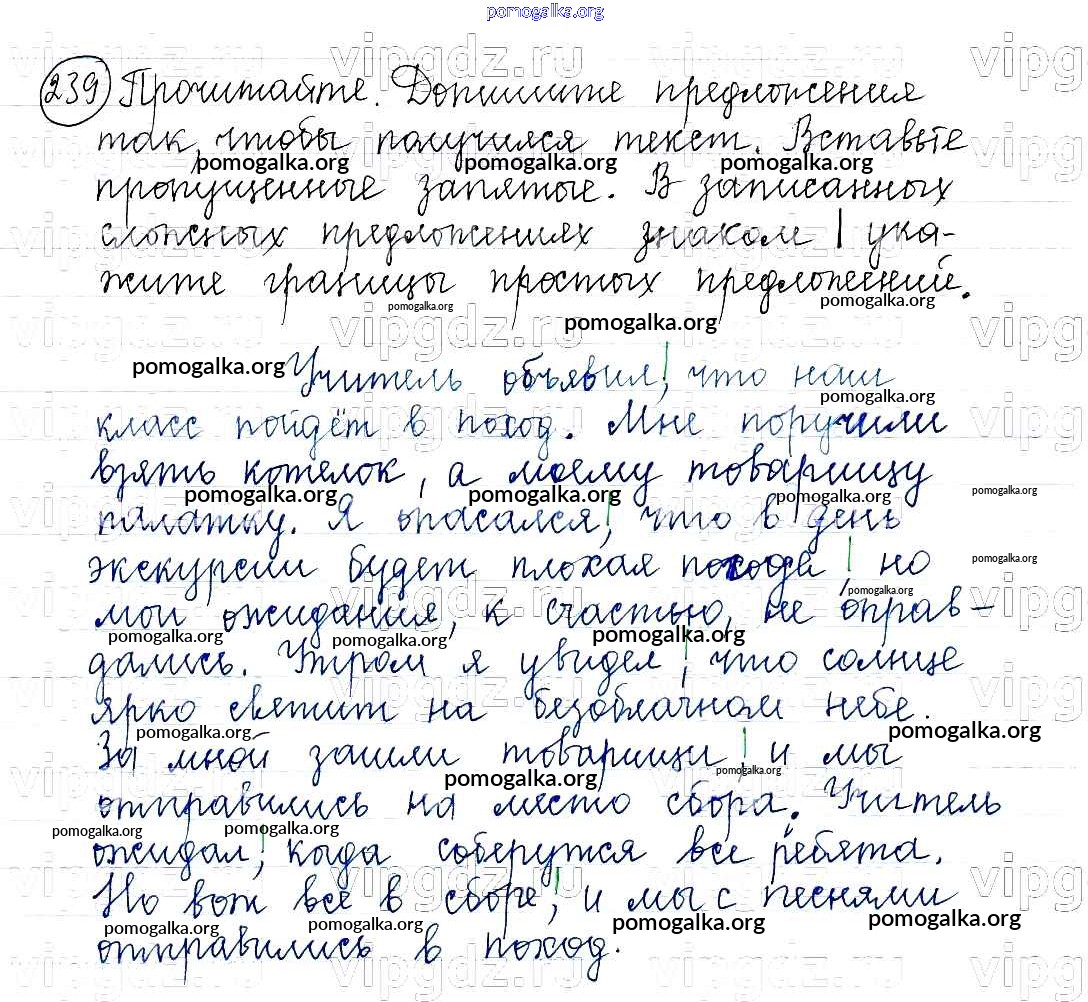 pomogalka.org
239 Прочитайте. Допишите предложения
так, чтобы получился текст. Вставьте
пропущенные запятые. В записанных
сложных предложениях знаком | ука-
жите границы простых предложений.
Учитель объявил,| что наш
класс пойдёт в поход. Мне поручили
взять котелок, а моему товарищу
палатку. Я опасался,| что в день
экскурсии будет плохая погода,| но
мои ожидания, к счастью, не оправ-
дались. Утром я увидел,| что солнце
ярко светит на безоблачном небе.
За мной зашли товарищи,| и мы
отправились на место сбора. Учитель
ожидал,| когда соберутся все ребята.
Но вот все в сборе,| и мы с песнями
отправились в поход.